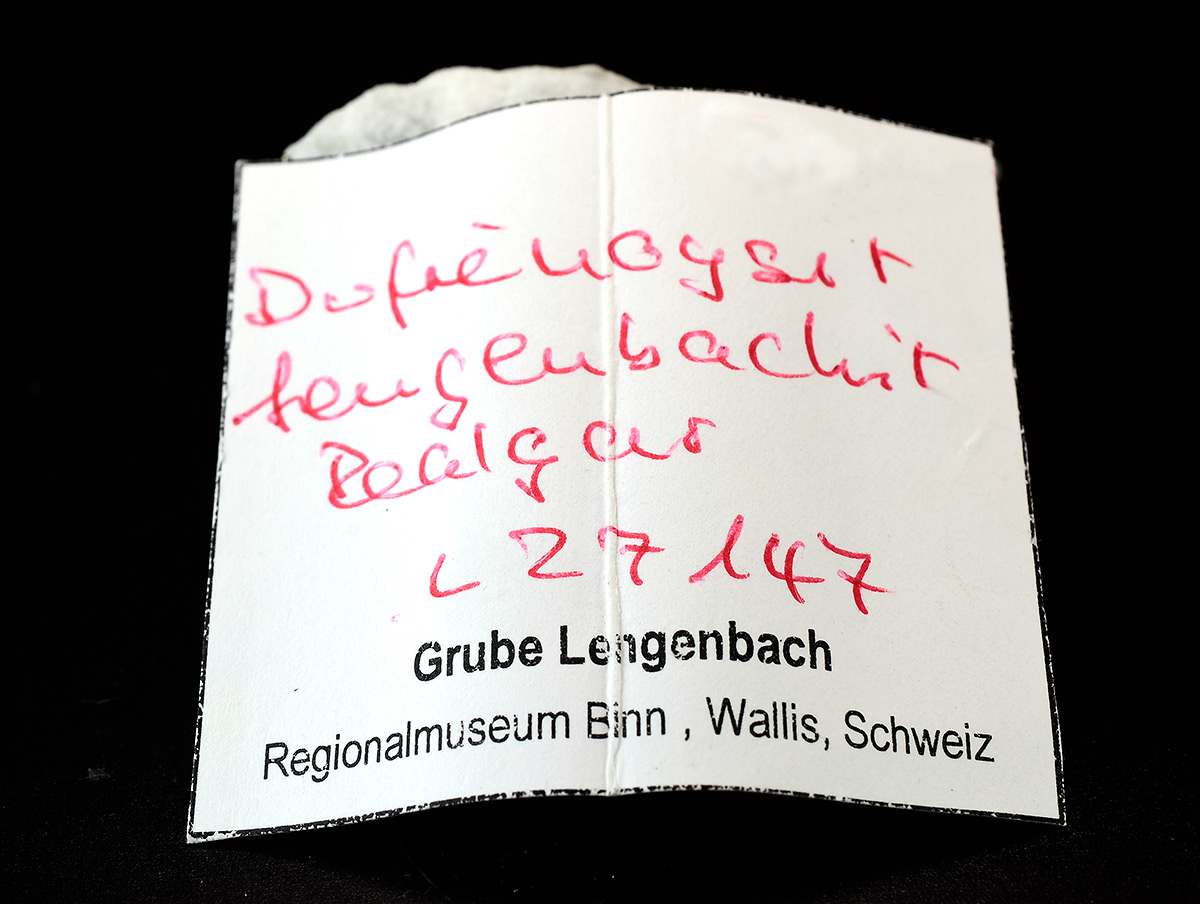 Dufrénoysit
Lengenbachit
Realgar
L 27147
Grube Lengenbach
Regionalmuseum Binn , Wallis, Schweiz